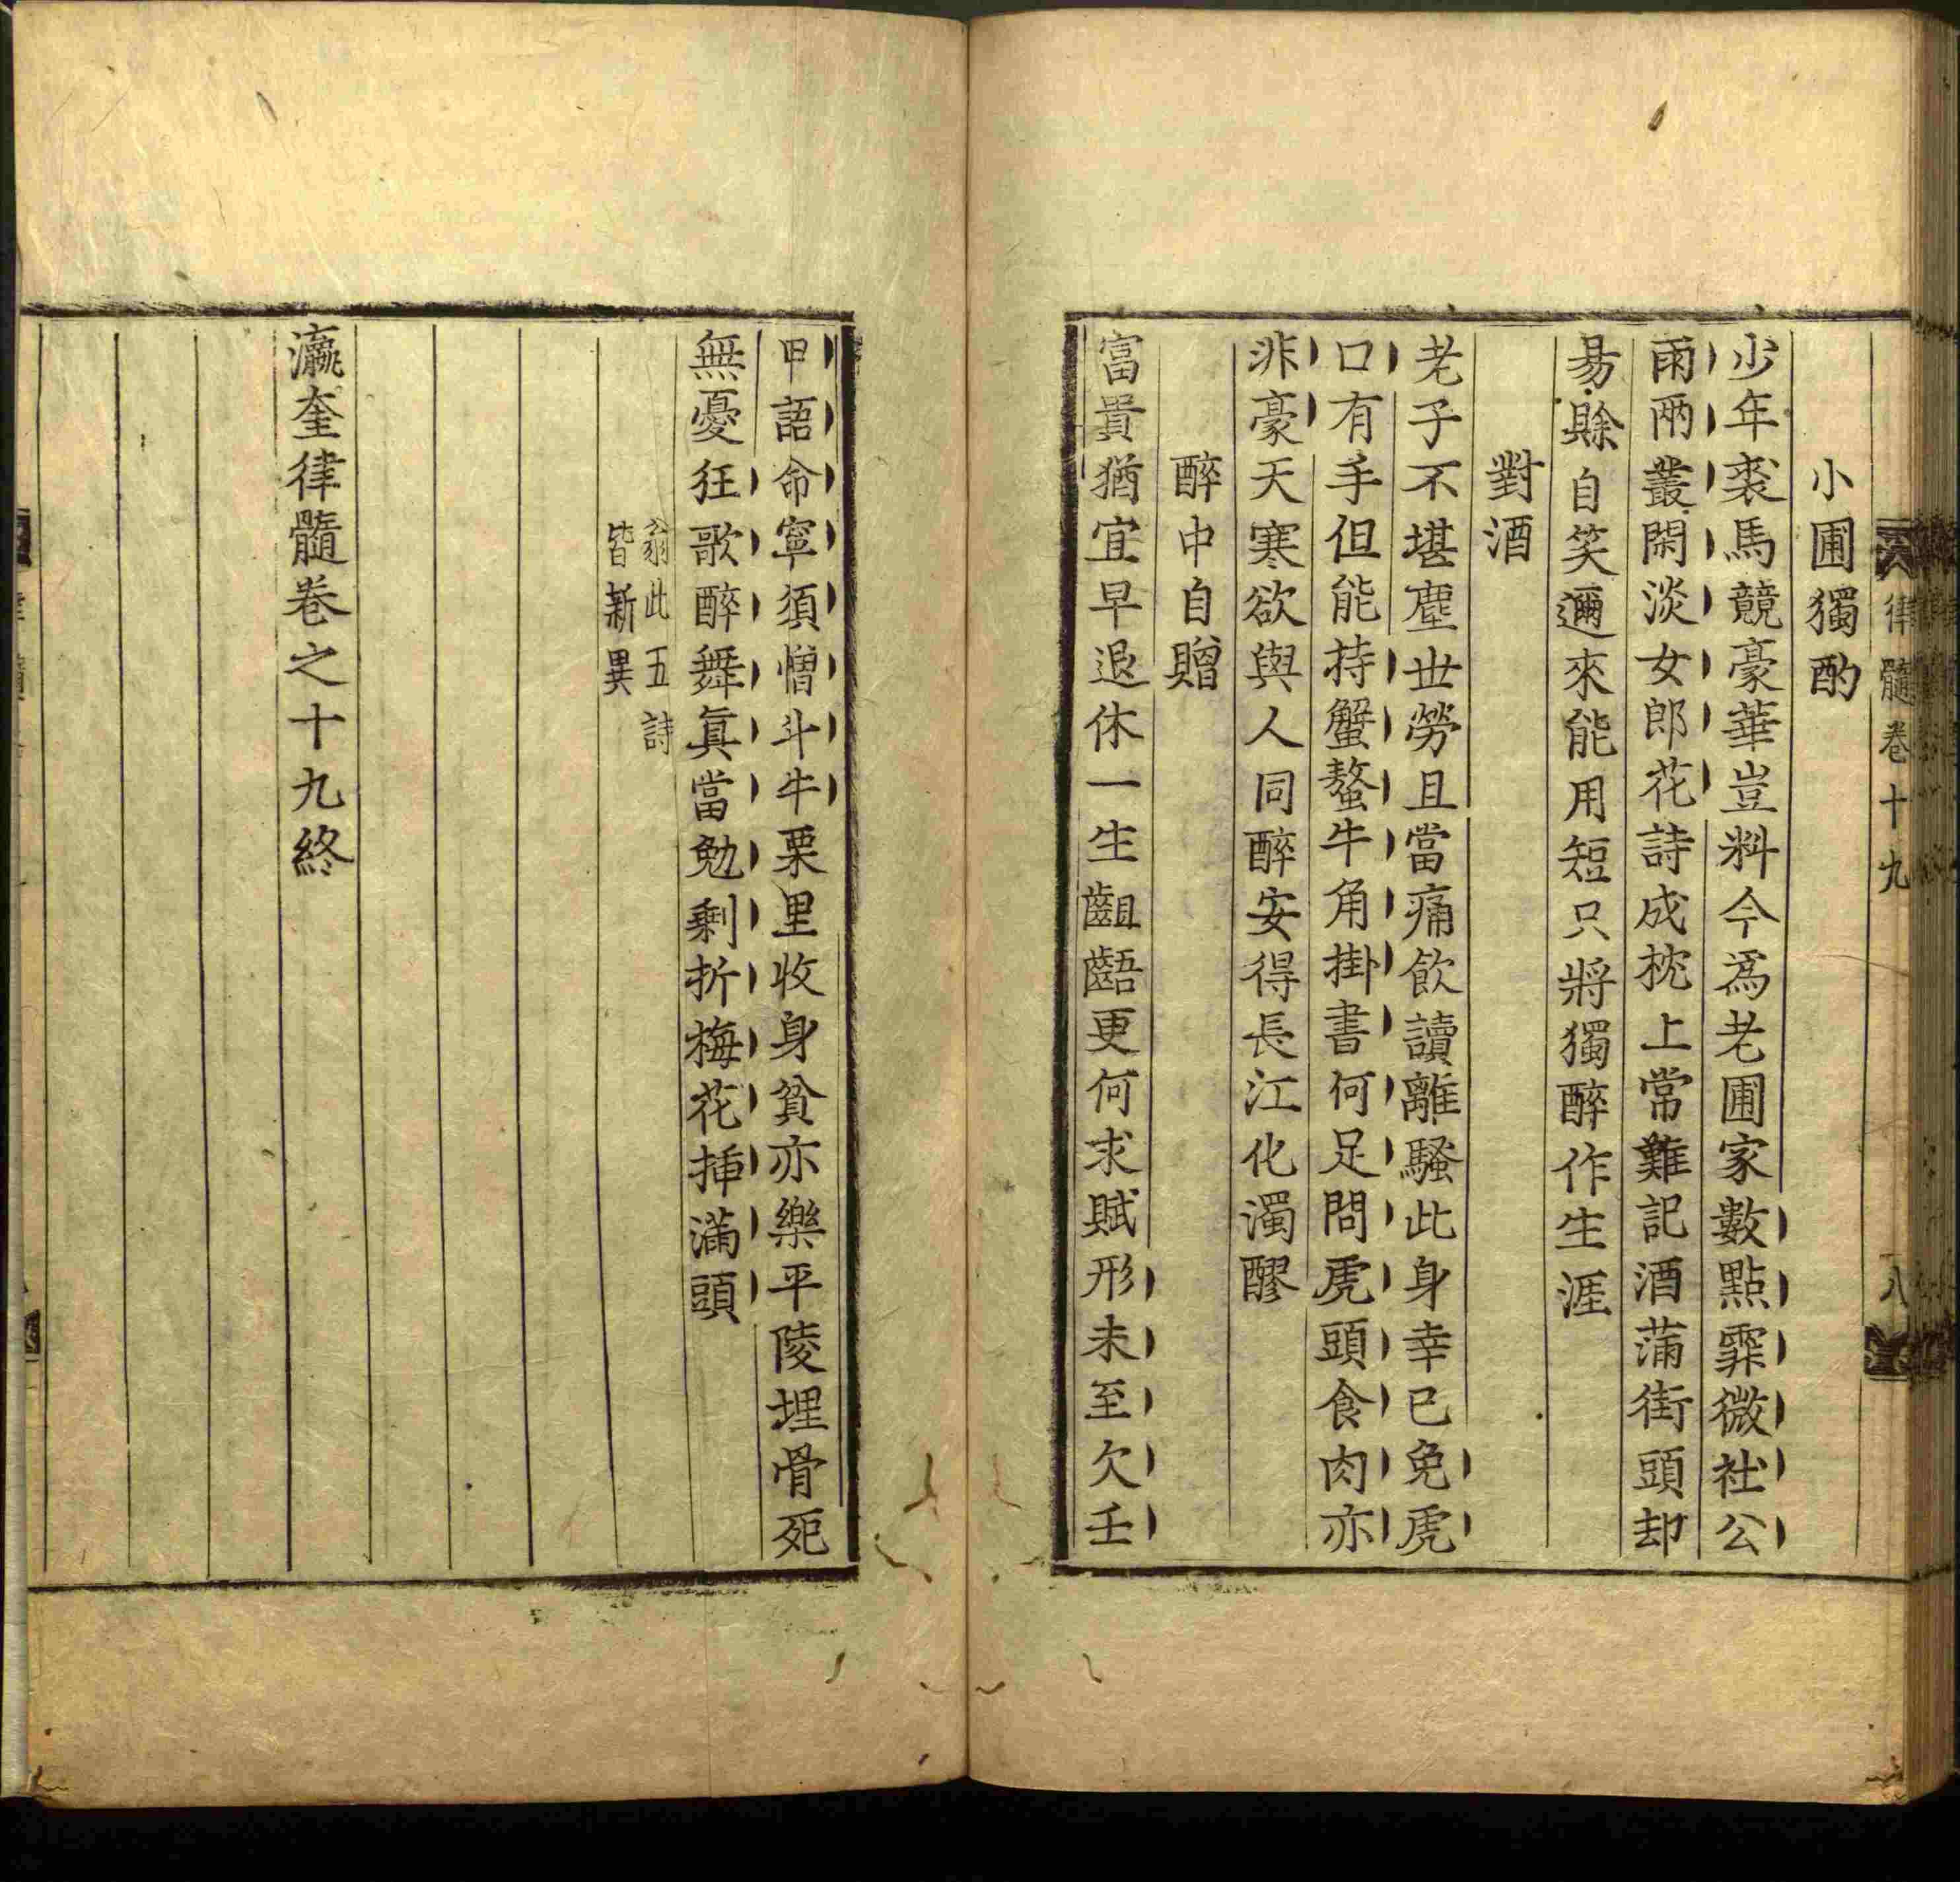 律髓卷十九
八
小圃獨酌
少年裘馬競豪華豈料今爲老圃家數點霏微社公
雨兩叢閑淡女郎花詩成枕上常難記酒滿街頭却
易賖自笑邇來能用短只將獨醉作生涯
對酒
老子不堪塵世勞且當痛飲讀離騷此身幸已免虎
口有手但能持蟹螯牛角掛書何足問虎頭食肉亦
非豪天寒欲與人同醉安得長江化濁醪
醉中自贈
富貴猶宜早退休一生齟齬更何求賦形未至欠壬
甲語命寧須憎斗牛栗里收身貧亦樂平陵埋骨死
無憂狂歌醉舞眞當勉剩折梅花揷滿頭
翁此五詩
皆新異
瀛奎律髓卷之十九終